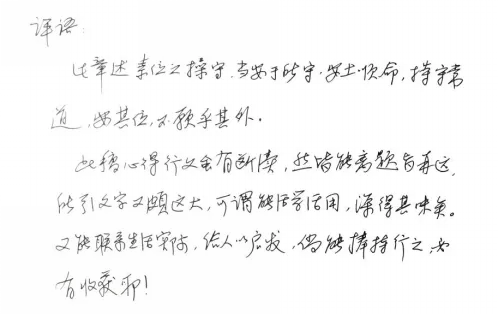 评语:
此章述素位之操守。当安于所守,安土顺命,持守常
道,安其位,不愿乎其外。
此稿心得行文虽有断续,然皆能离题旨再述,
所引文字又颇远大,可谓能活学活用,深得其味矣。
又能联系生活实际,给人以启发,倘能捧持行之,必
有收获耶!